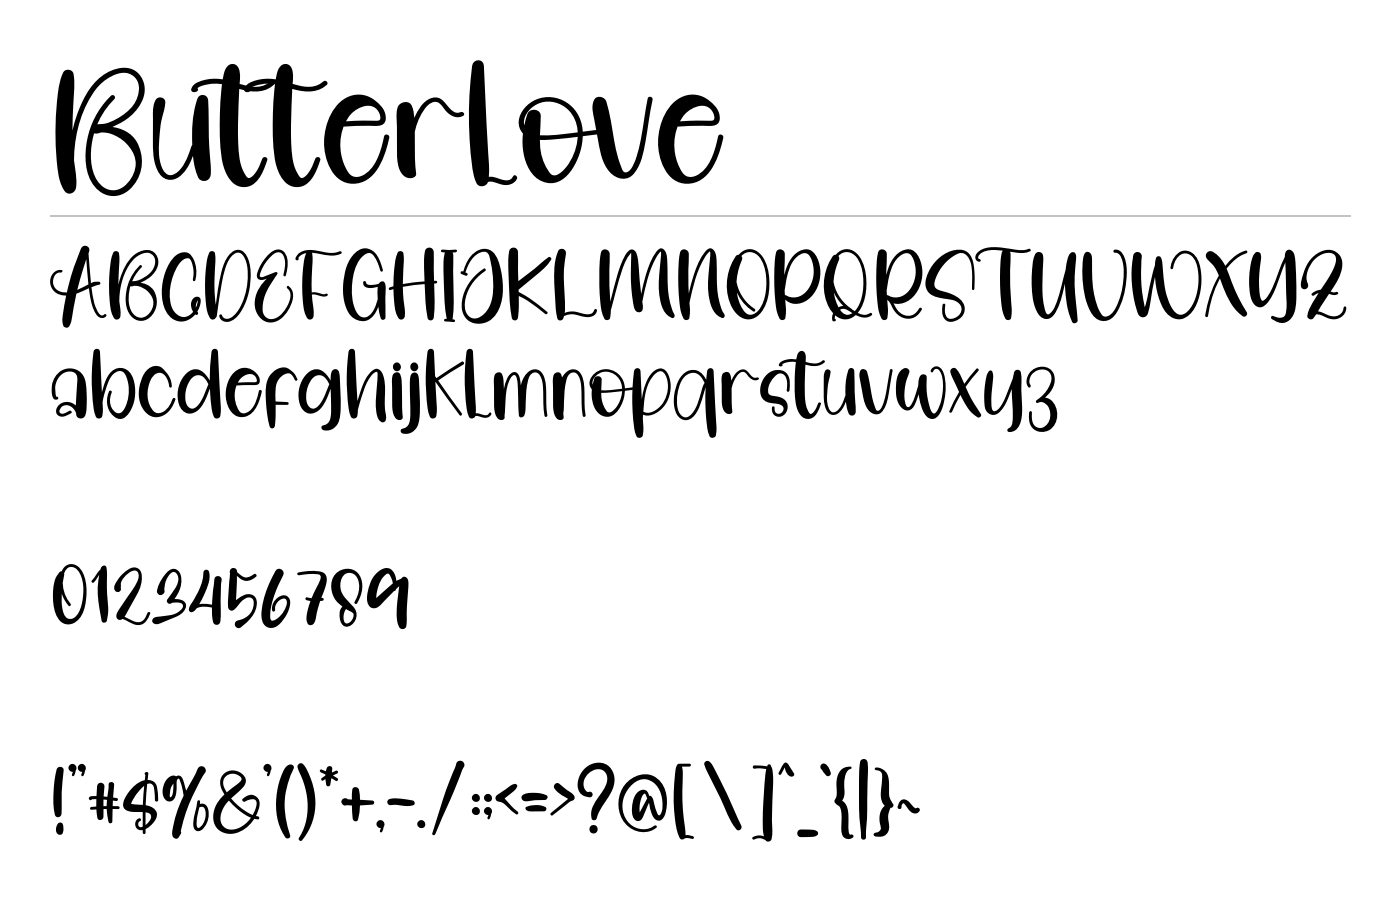 ButterLove
ABCDEFGHIJKLMNOPQRSTUVWXYZ
abcdefghijklmnopqrstuvwxyz
0123456789
!"#$%&'()*+,-./:;<=>?@[\]^_`{|}~